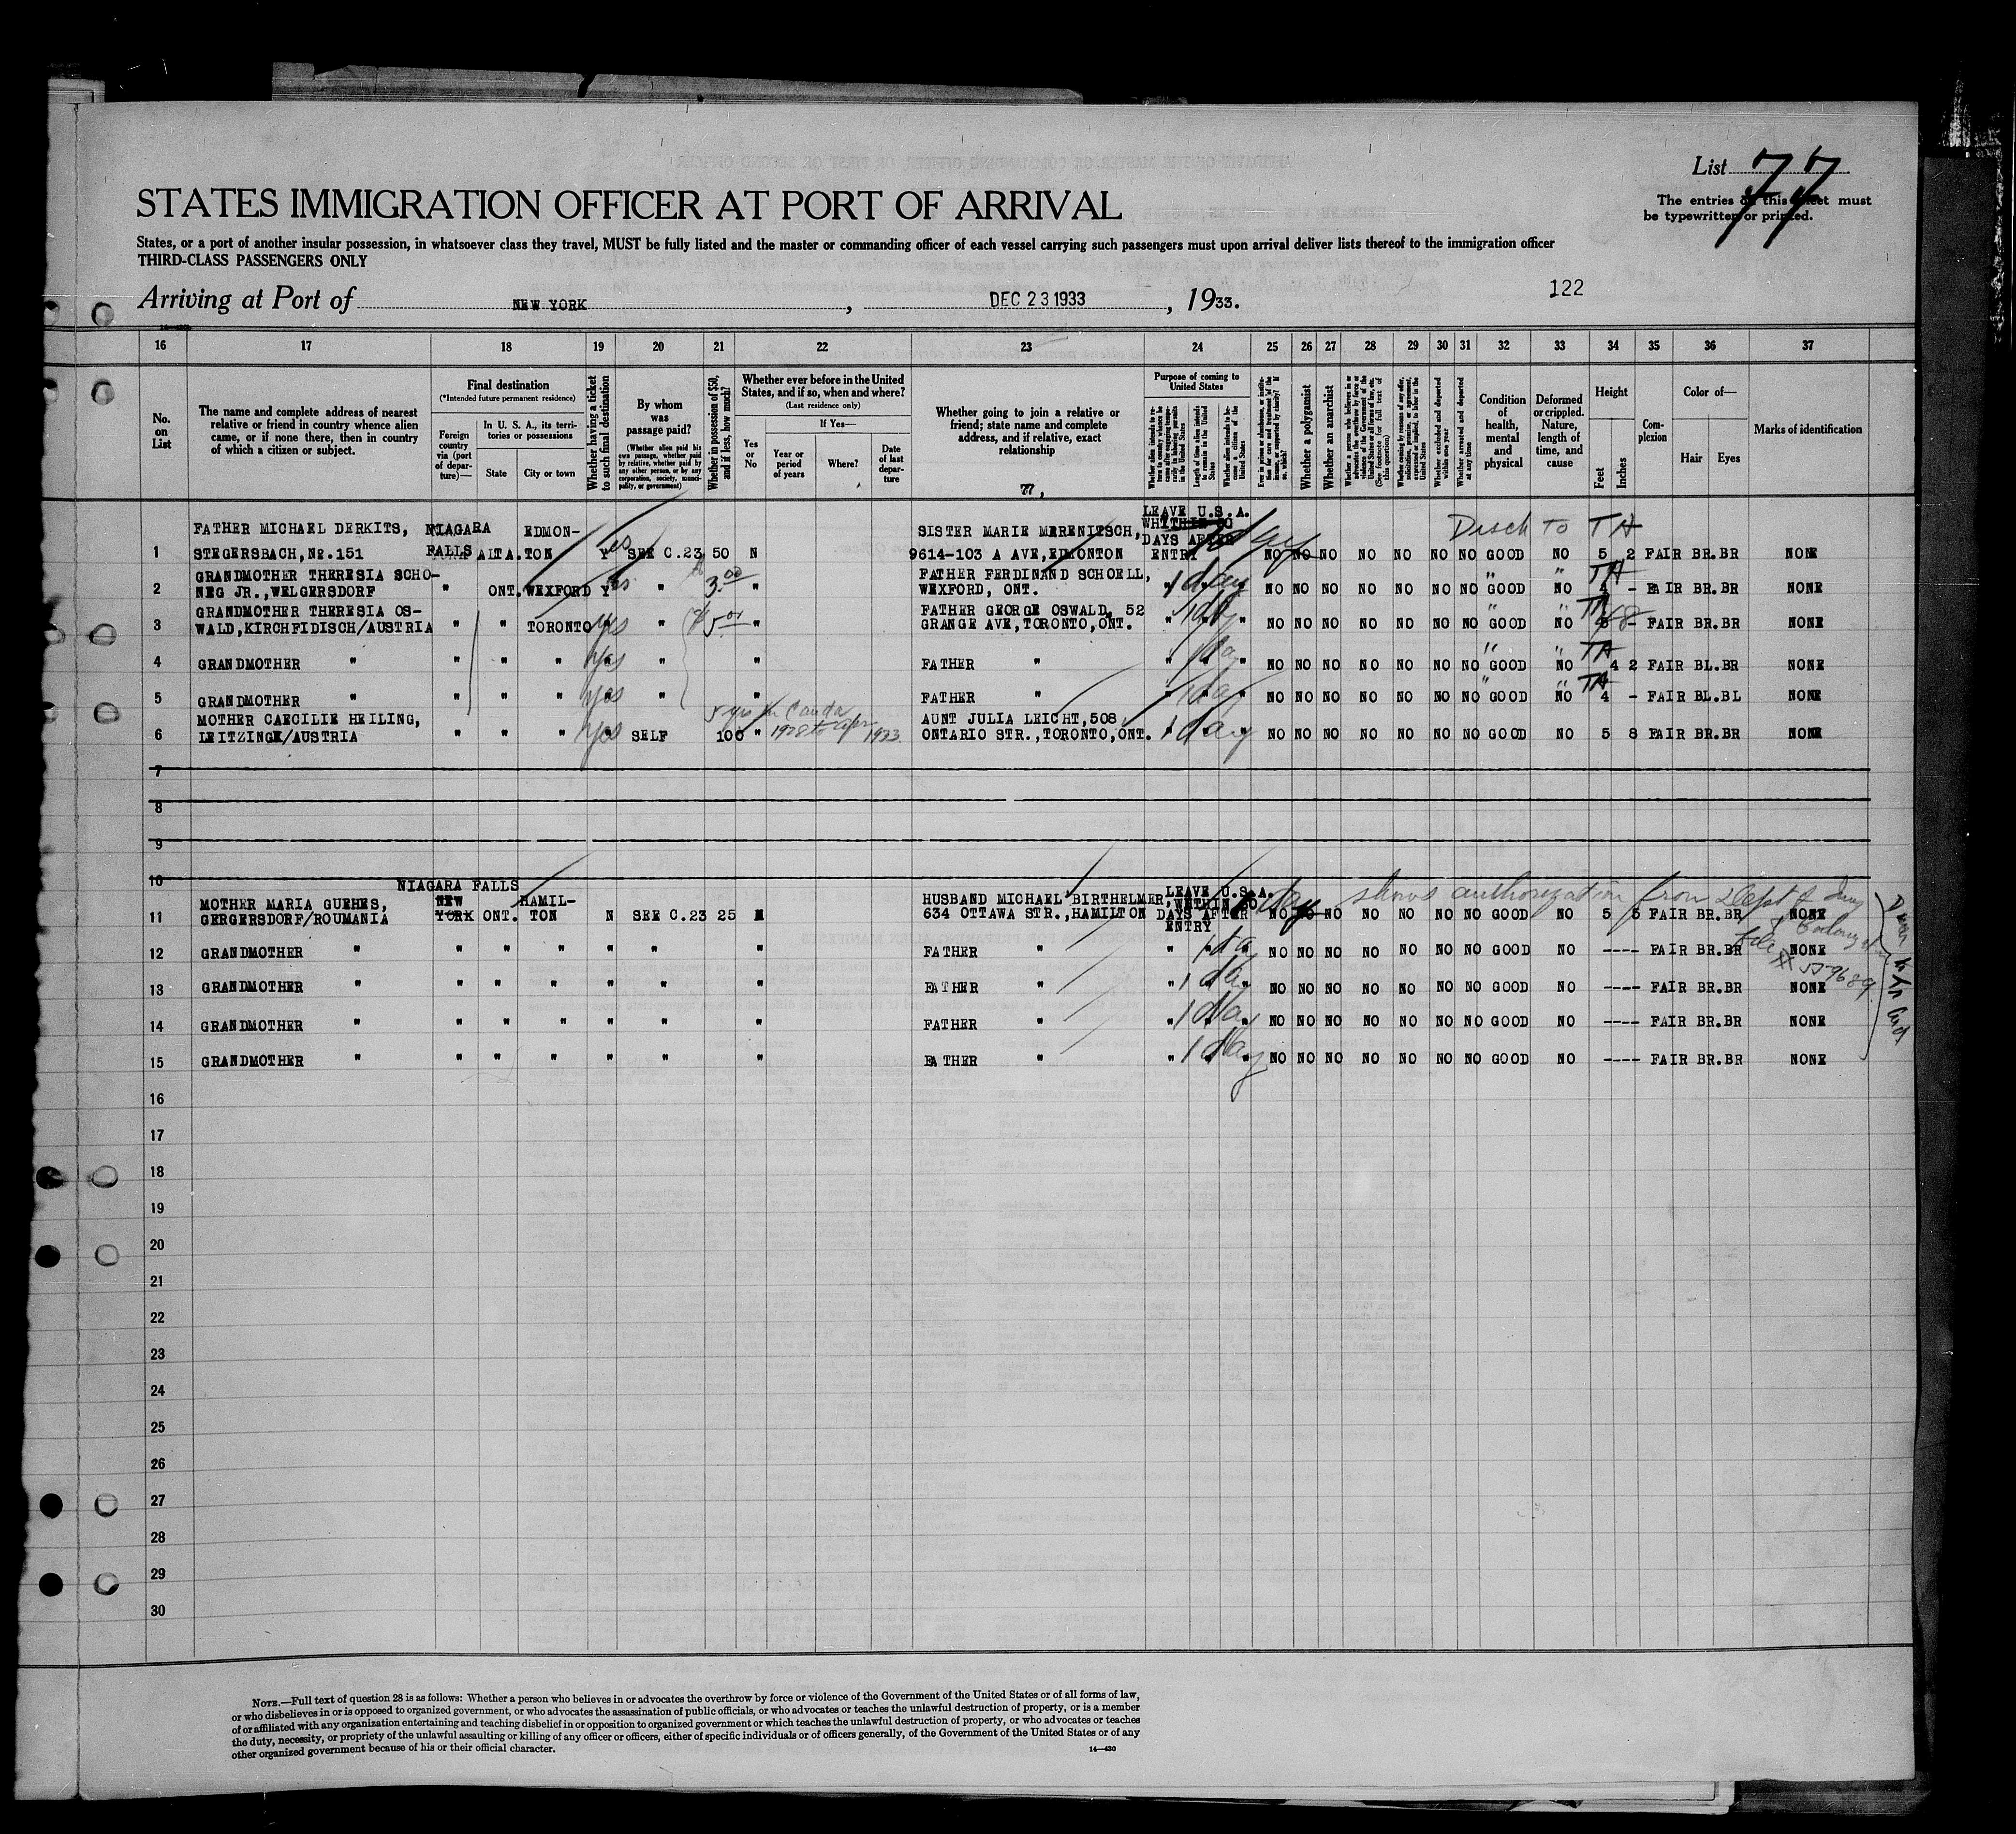 List 77
The entries on this sheet must
be typewritten or printed.
STATES IMMIGRATION OFFICER AT PORT OF ARRIVAL
States, or a port of another insular possession, in whatsoever class they travel, MUST be fully listed and the master or commanding officer of each vessel carrying such passengers must upon arrival deliver lists thereof to the immigration officer
THIRD-CLASS PASSENGERS ONLY
Arriving at Port of NEW YORK, DEC 23 1933, 1933.
122
16 17 18 19 20 21 22 23 24 25 26 27 28 29 30 31 32 33 34 35 36 37
No. on List
The name and complete address of nearest relative or friend in country whence alien came, or if none there, then in country of which a citizen or subject.
Final destination
(*Intended future permanent residence)
Foreign country via (port of departure)—
In U. S. A., its territories or possessions
State
City or town
Whether having a ticket to such final destination
By whom was passage paid?
(Whether alien paid his own passage, whether paid by relative, whether paid by any other person, or by any corporation, society, municipality, or government)
Whether in possession of $50, and if less, how much?
Whether ever before in the United States, and if so, when and where?
(Last residence only)
Yes or No
If Yes—
Year or period of years
Where?
Date of last departure
Whether going to join a relative or friend; state name and complete address, and if relative, exact relationship
77,
Purpose of coming to United States
Length of time alien intends to remain in the United States
Whether alien intends to become a citizen of the United States
Whether a polygamist
Whether an anarchist
(See footnote for full text of this question)
Whether excluded and deported within one year
Whether arrested and deported at any time
Condition of health, mental and physical
Deformed or crippled. Nature, length of time, and cause
Height
Feet
Inches
Complexion
Color of—
Hair
Eyes
Marks of identification
Disch to TA
1 FATHER MICHAEL DERKITS, STEGERSBACH, No.151 NIAGARA FALLS ALTA. EDMONTON Yes SEE C.23 50 N SISTER MARIE MERENITSCH, 9614-103 A AVE, EDMONTON LEAVE U.S.A. WHITHIN DAYS AFTER ENTRY NO NO NO NO NO NO NO GOOD NO 5 2 FAIR BR.BR NONE
2 GRANDMOTHER THERESIA SCHO-NEG JR., WELGERSDORF " ONT. WEXFORD Yes " 3.00 " FATHER FERDINAND SCHOELL, WEXFORD, ONT. 1 day NO NO NO NO NO NO NO GOOD NO TA 4 - FAIR BR.BR NONE
3 GRANDMOTHER THERESIA OS-WALD, KIRCHFIDISCH/AUSTRIA " " TORONTO yes " $5.00 " FATHER GEORGE OSWALD, 52 GRANGE AVE, TORONTO, ONT. 1 day NO NO NO NO NO NO NO GOOD NO TA FAIR BR.BR NONE
4 GRANDMOTHER " " " " yes " " FATHER " " 1 day NO NO NO NO NO NO NO GOOD NO TA 4 2 FAIR BL.BR NONE
5 GRANDMOTHER " " " " yes " " FATHER " " 1 day NO NO NO NO NO NO NO GOOD NO TA 4 - FAIR BL.BL NONE
6 MOTHER CAECILIE HEILING, LEITZING/AUSTRIA " " " yes SELF 100 " 5 yrs in Canda 1928 to 1933 AUNT JULIA LEICHT, 508 ONTARIO STR., TORONTO, ONT. 1 day NO NO NO NO NO NO NO GOOD NO 5 8 FAIR BR.BR NONE
7
8
9
10
shows authorization from Dept of
11 MOTHER MARIA GUEHES, GERGERSDORF/ROUMANIA NIAGARA FALLS NEW YORK ONT. HAMILTON N SEE C.23 25 HUSBAND MICHAEL BIRTHELMER, 634 OTTAWA STR., HAMILTON LEAVE U.S.A. WITHIN DAYS AFTER ENTRY day NO NO NO NO NO NO NO GOOD NO 5 5 FAIR BR.BR NONE
12 GRANDMOTHER " " " " " " " FATHER " " 1 da NO NO NO NO NO NO NO GOOD NO ---- FAIR BR.BR NONE
file # 559689
13 GRANDMOTHER " " " " " " " FATHER " " 1 day NO NO NO NO NO NO NO GOOD NO ---- FAIR BR.BR NONE
14 GRANDMOTHER " " " " " " " FATHER " " 1 day NO NO NO NO NO NO NO GOOD NO ---- FAIR BR.BR NONE
15 GRANDMOTHER " " " " " " " FATHER " " 1 day NO NO NO NO NO NO NO GOOD NO ---- FAIR BR.BR NONE
16
17
18
19
20
21
22
23
24
25
26
27
28
29
30
NOTE.—Full text of question 28 is as follows: Whether a person who believes in or advocates the overthrow by force or violence of the Government of the United States or of all forms of law,
or who disbelieves in or is opposed to organized government, or who advocates the assassination of public officials, or who advocates or teaches the unlawful destruction of property, or is a member
of or affiliated with any organization entertaining and teaching disbelief in or opposition to organized government or which teaches the unlawful destruction of property, or who advocates or teaches
the duty, necessity, or propriety of the unlawful assaulting or killing of any officer or officers, either of specific individuals or of officers generally, of the Government of the United States or of any
other organized government because of his or their official character.
14—430